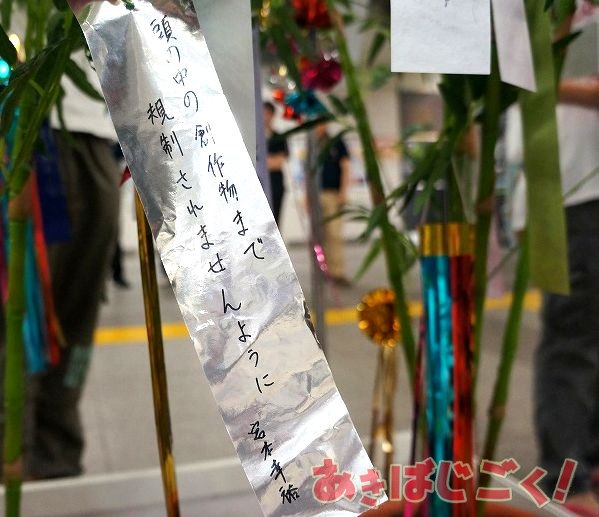 頭の中の創作物まで
規制されませんように
あきばじごく!